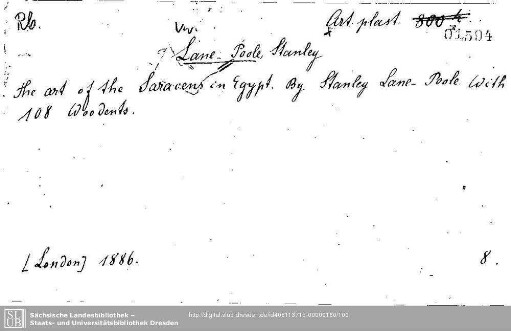 Rb.
Vw.
Art. plast.
01504
Lane-Poole, Stanley
The art of the Saracens in Egypt. By Stanley Lane-Poole With
108 Woodcuts.
[London] 1886.
8.
SLUB
Sächsische Landesbibliothek –
Staats- und Universitätsbibliothek Dresden